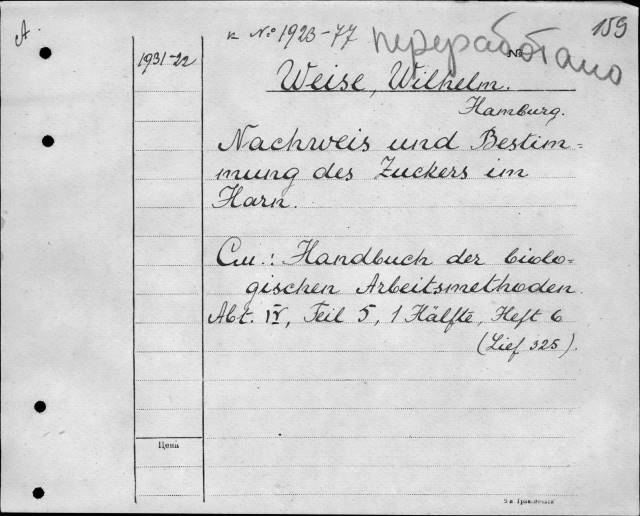 A.
к № 1923-77 переработано 159
№
1931-22
Weise, Wilhelm.
Hamburg.
Nachweis und Bestim=
mung des Zuckers im
Harn.
См.: Handbuch der biolo=
gischen Arbeitsmethoden.
Abt. IV, Teil 5, 1 Hälfte, Heft 6
(Lief 325).
Цена